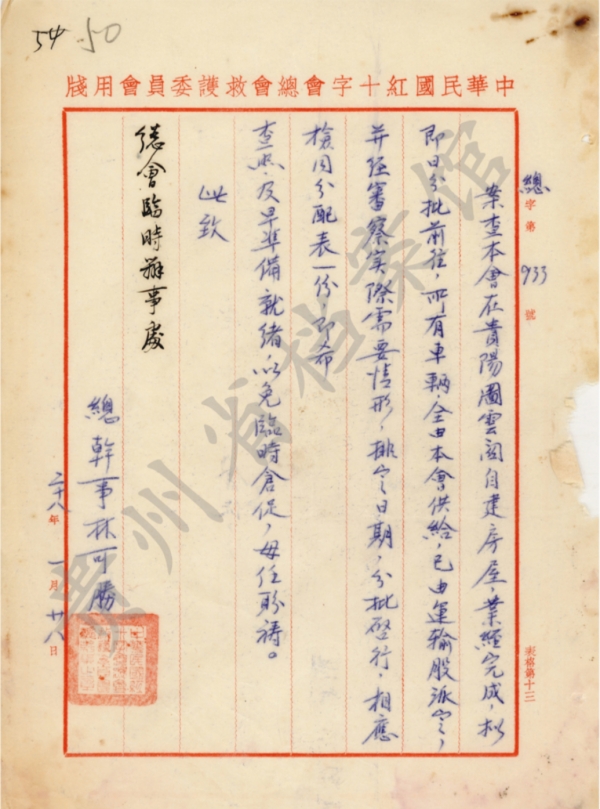 54 50
中華民國紅十字會總會救護委員會用牋
總字第933號
案查本會在貴陽圖雲關自建房屋,業經完成,擬
即日分批前往,所有車輛,全由本會供給,已由運輸股派定,
并經審察實際需要情形,排定日期,分批啓行,相應
檢同分配表一份,即希
查照及早準備就緒,以免臨時倉促,毋任盼禱。
此致
總會臨時辦事處
總幹事林可勝
二十八年一月廿八日
表格第十三
貴州省档案馆